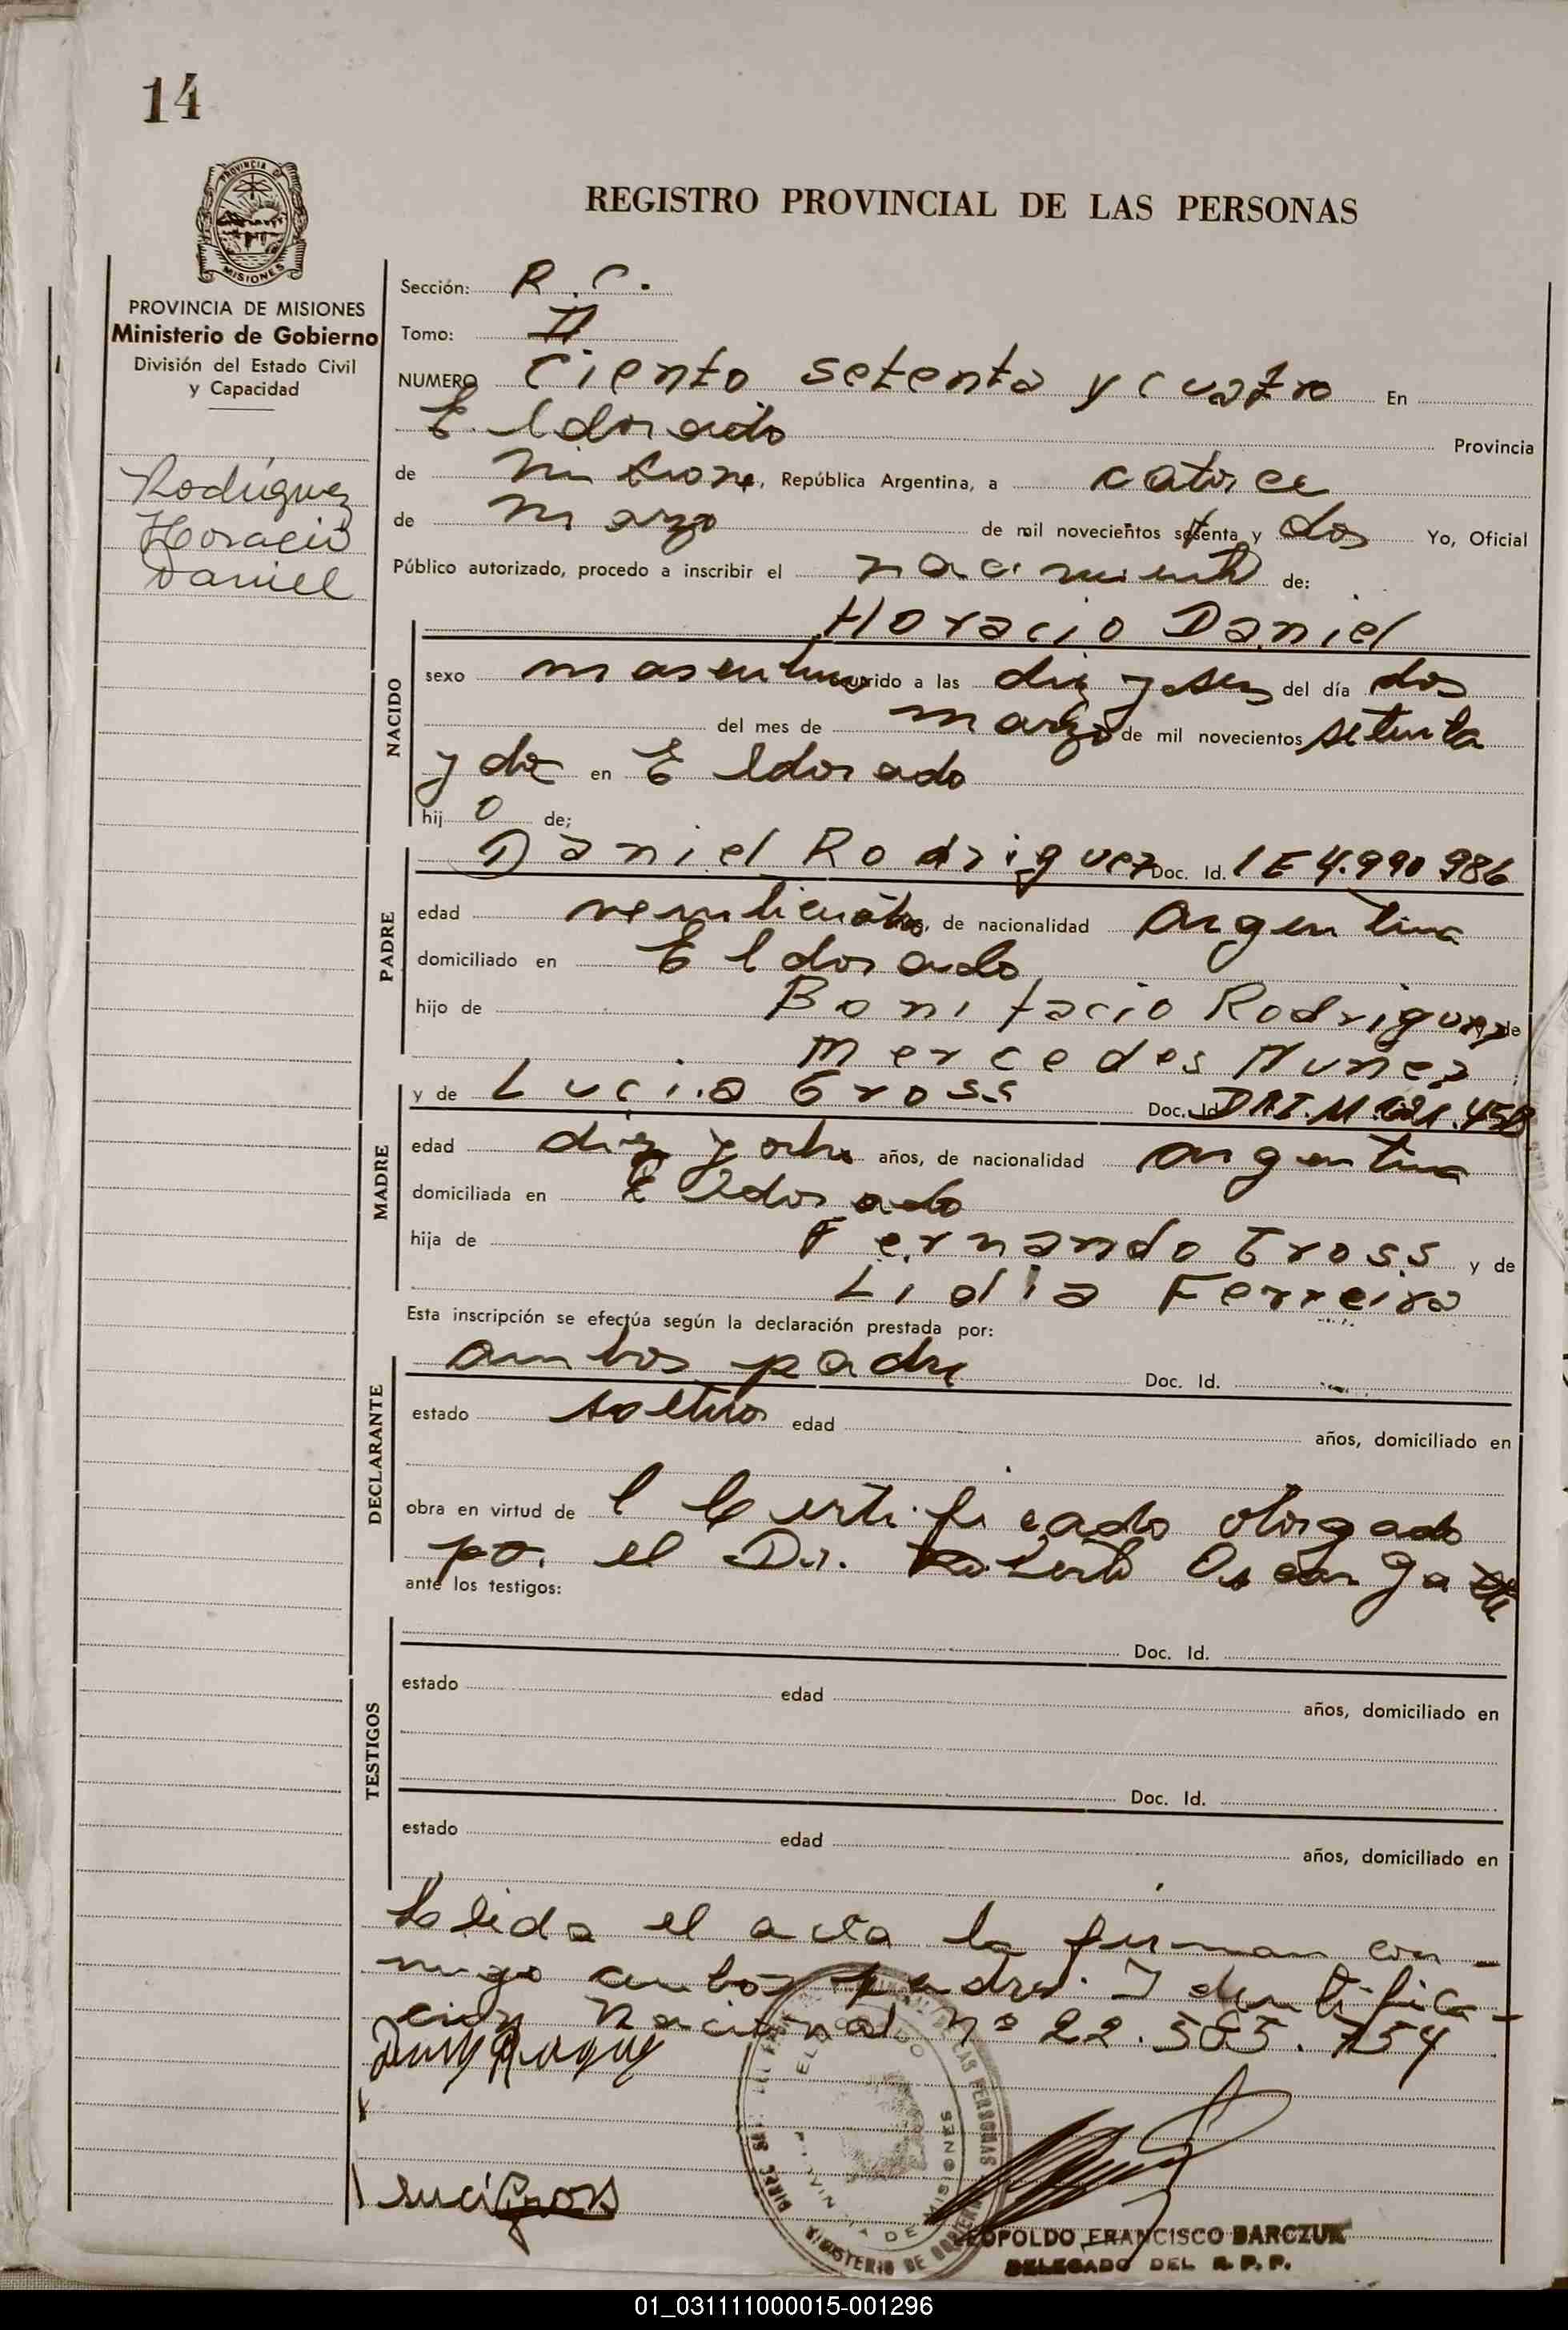 14
PROVINCIA DE
MISIONES
REGISTRO PROVINCIAL DE LAS PERSONAS
PROVINCIA DE MISIONES
Ministerio de Gobierno
División del Estado Civil
y Capacidad
Rodríguez
Horacio
Daniel
Sección: R. C.
Tomo: II
NUMERO Ciento setenta y cuatro En
Eldorado Provincia
de Misiones, República Argentina, a catorce
de marzo de mil novecientos setenta y dos Yo, Oficial
Público autorizado, procedo a inscribir el nacimiento de:
Horacio Daniel
NACIDO
sexo masculino ocurrido a las diez y seis del día dos
del mes de marzo de mil novecientos setenta
y dos en Eldorado
hijo de;
PADRE
Daniel Rodriguez Doc. Id. LE 4.990 986
edad años, de nacionalidad argentina
domiciliado en Eldorado
hijo de Bonifacio Rodriguez y de
Mercedes Nuñez
MADRE
y de Lucia Gross Doc. Id.
edad diez y ocho años, de nacionalidad argentina
domiciliada en Eldorado
hija de Fernando Gross y de
Lidia Ferreira
Esta inscripción se efectúa según la declaración prestada por:
DECLARANTE
ambos padres Doc. Id.
estado solteros edad años, domiciliado en
obra en virtud del Certificado otorgado
por el Dr. Roberto Oscar
ante los testigos:
TESTIGOS
Doc. Id.
estado edad años, domiciliado en
Doc. Id.
estado edad años, domiciliado en
Leida el acta la firman con-
migo ambos padres. Identifica-
cion Nacional nº 22.565.754
Luci Gross
ELDORADO
PROVINCIA DE MISIONES
MINISTERIO DE GOBIERNO
LEOPOLDO FRANCISCO BARCZUK
DELEGADO DEL R. P. P.
01_031111000015-001296